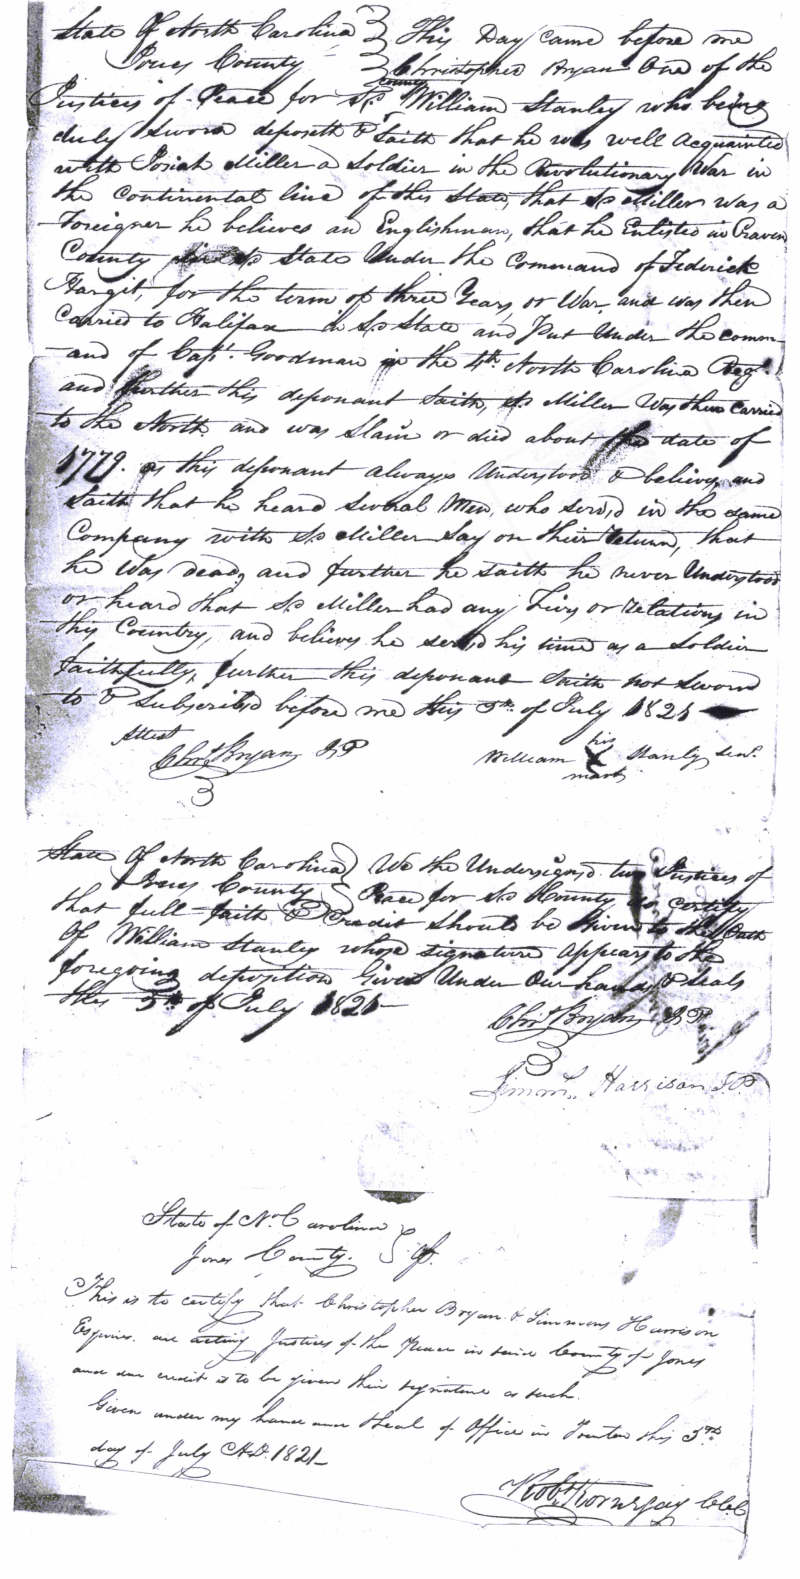 State Of North Carolina } This Day came before me
Jones County } Christopher Bryan One of the
Justices of Peace for sd County William Stanley who being
duly Sworn deposeth & Saith that he was well Acquainted
with Josiah Miller a Soldier in the Revolutionary War in
the Continental line of this State, that sd Miller was a
Foreigner he believes an Englishman, that he Enlisted in Craven
County sd State Under the Command of Federick
Hargit, for the term of three Years, or War, and was then
Carried to Halifax in sd State and Put Under the comm-
-and of Capt. Goodman in the 4th North Carolina Regt
and further this deponant Saith, sd Miller Was then Carried
to the North and was Slain or died about the date of
1779. as this deponant always Understood & believes, and
Saith that he heard Several Men, who servd in the same
Company with sd Miller Say on their return, that
he Was dead, and further he saith he never Understood
or heard that sd Miller had any heirs or relations in
this Country, and believes he servd his time as a Soldier
faithfully, further this deponant Saith not Sword
to & Subscribd before me this 3rd of July 1821
Attest
Chrs. Bryan JP
William his X mark Stanly Senr.
State Of North Carolina } We the Undersignd. two Justices of
Jones County } Peace for sd County do certify
that full faith & Credit should be Given to the Oath
Of William Stanley whose signature appears to the
foregoing deposition Given Under Our hands & Seals
this 3rd of July 1821
Chrs. Bryan JP
Simms. Harrison J.P.
State of No. Carolina
Jones County.
This is to certify that Christopher Bryan & Simmons Harrison
Esquires are acting Justices of the Peace in said County of Jones
and due credit is to be given their signature as such.
Given under my hand and Seal of Office in Trenton this 3rd
day of July A.D. 1821
Robt. Kornegay C.C.C